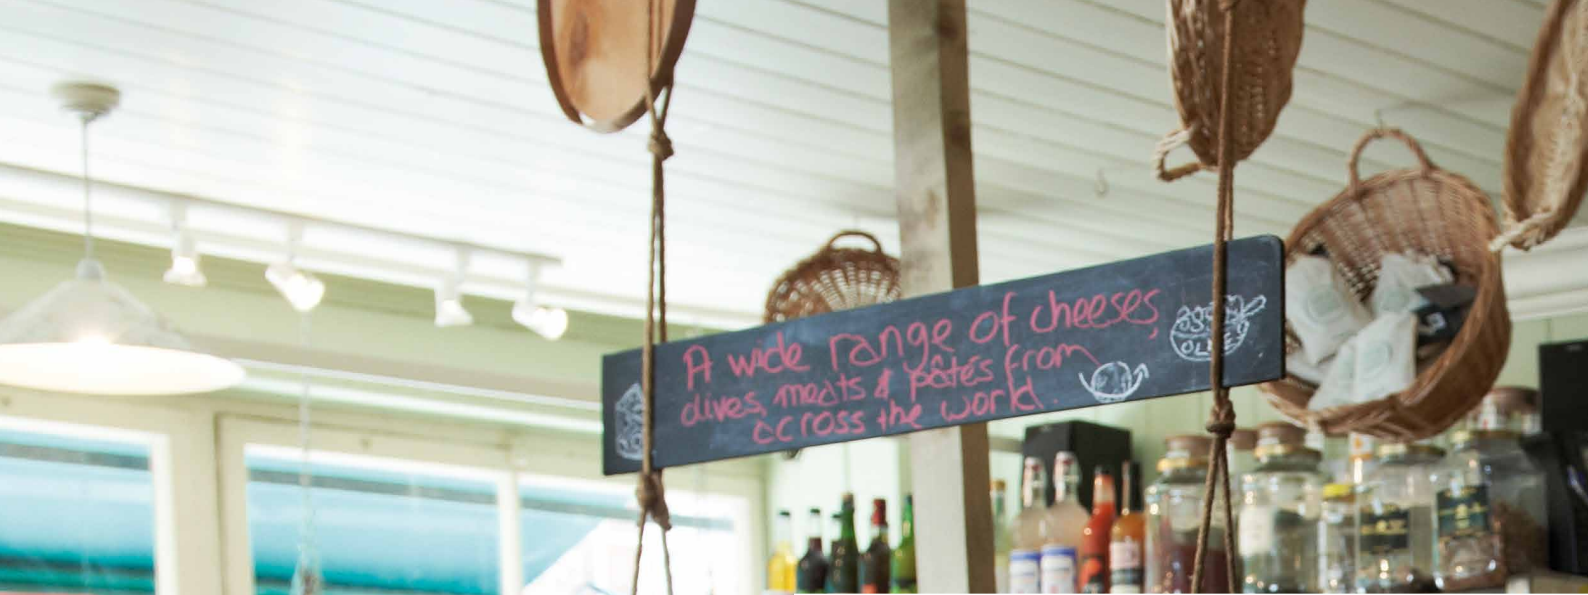 A wide range of cheeses,
olives, meats & pâtés from
across the world.
OLIVES